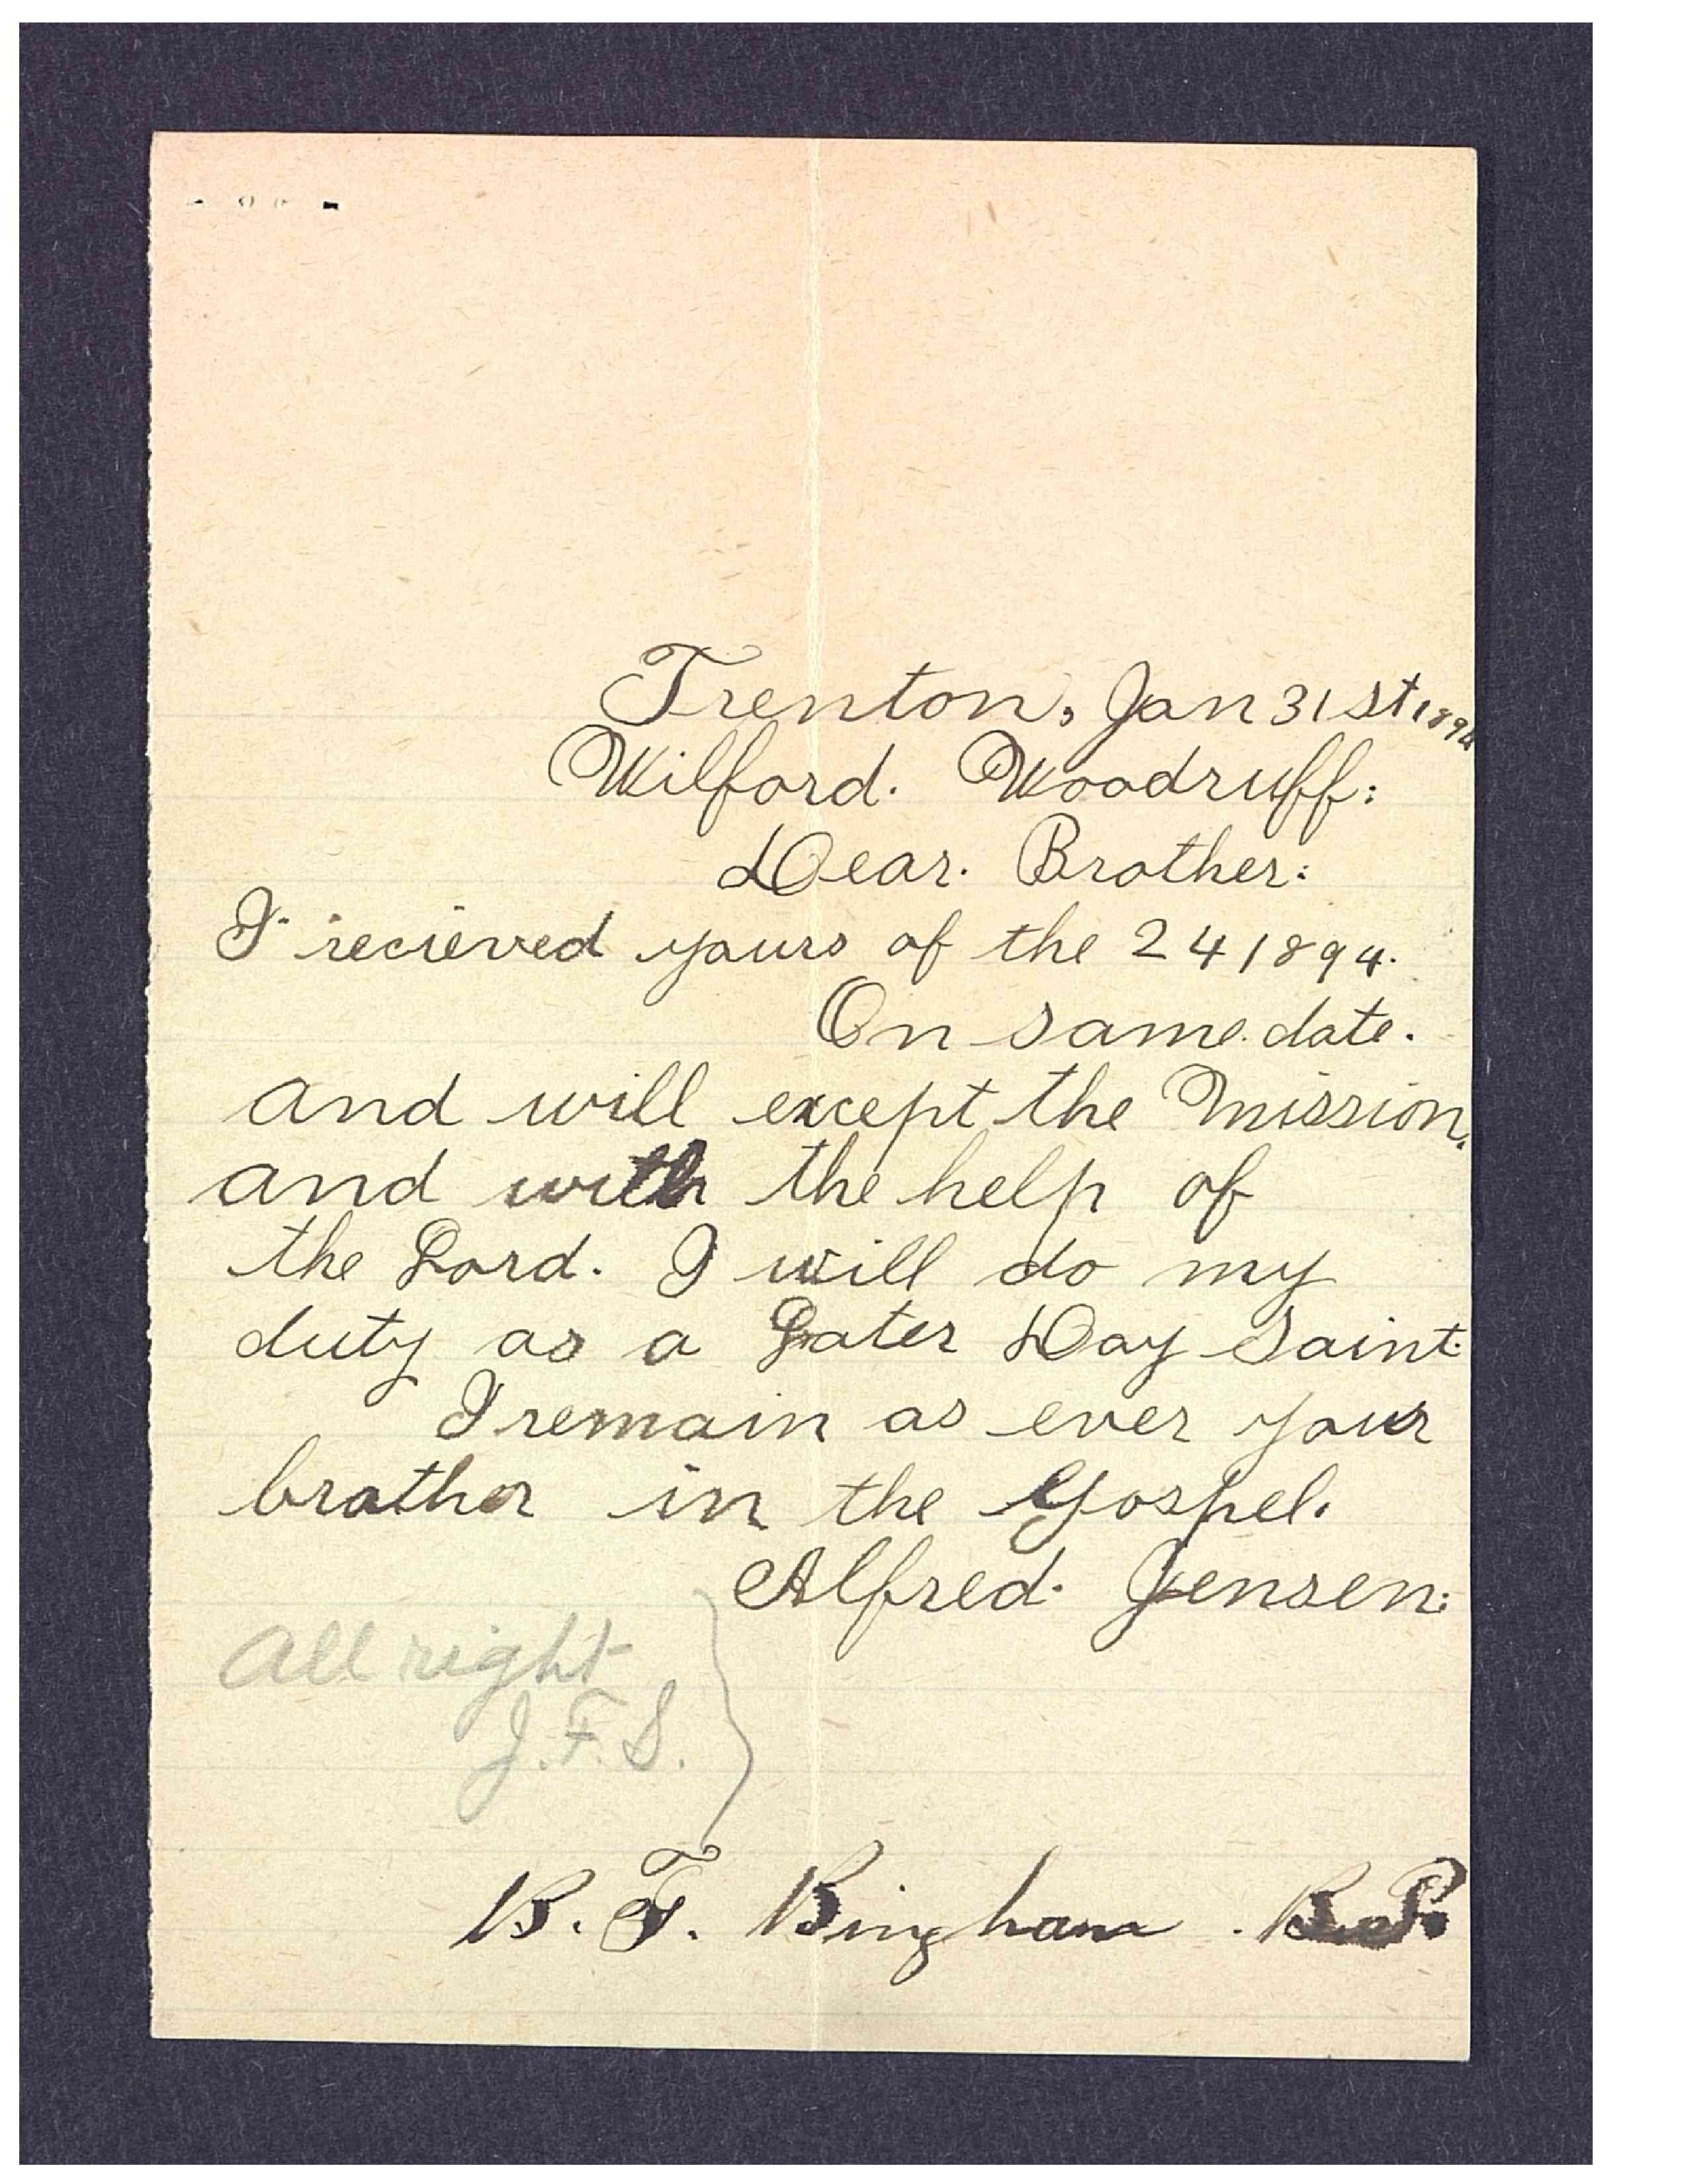 Trenton, Jan 31 st 1894
Wilford. Woodruff:
Dear. Brother:
I recieved yours of the 24 1894.
On same date.
and will except the Mission.
and with the help of
the Lord. I will do my
duty as a Later Day Saint.
I remain as ever your
brother in the Gospel.
Alfred. Jensen:
All right
J.F.S.
B. F. Bingham. B.P.